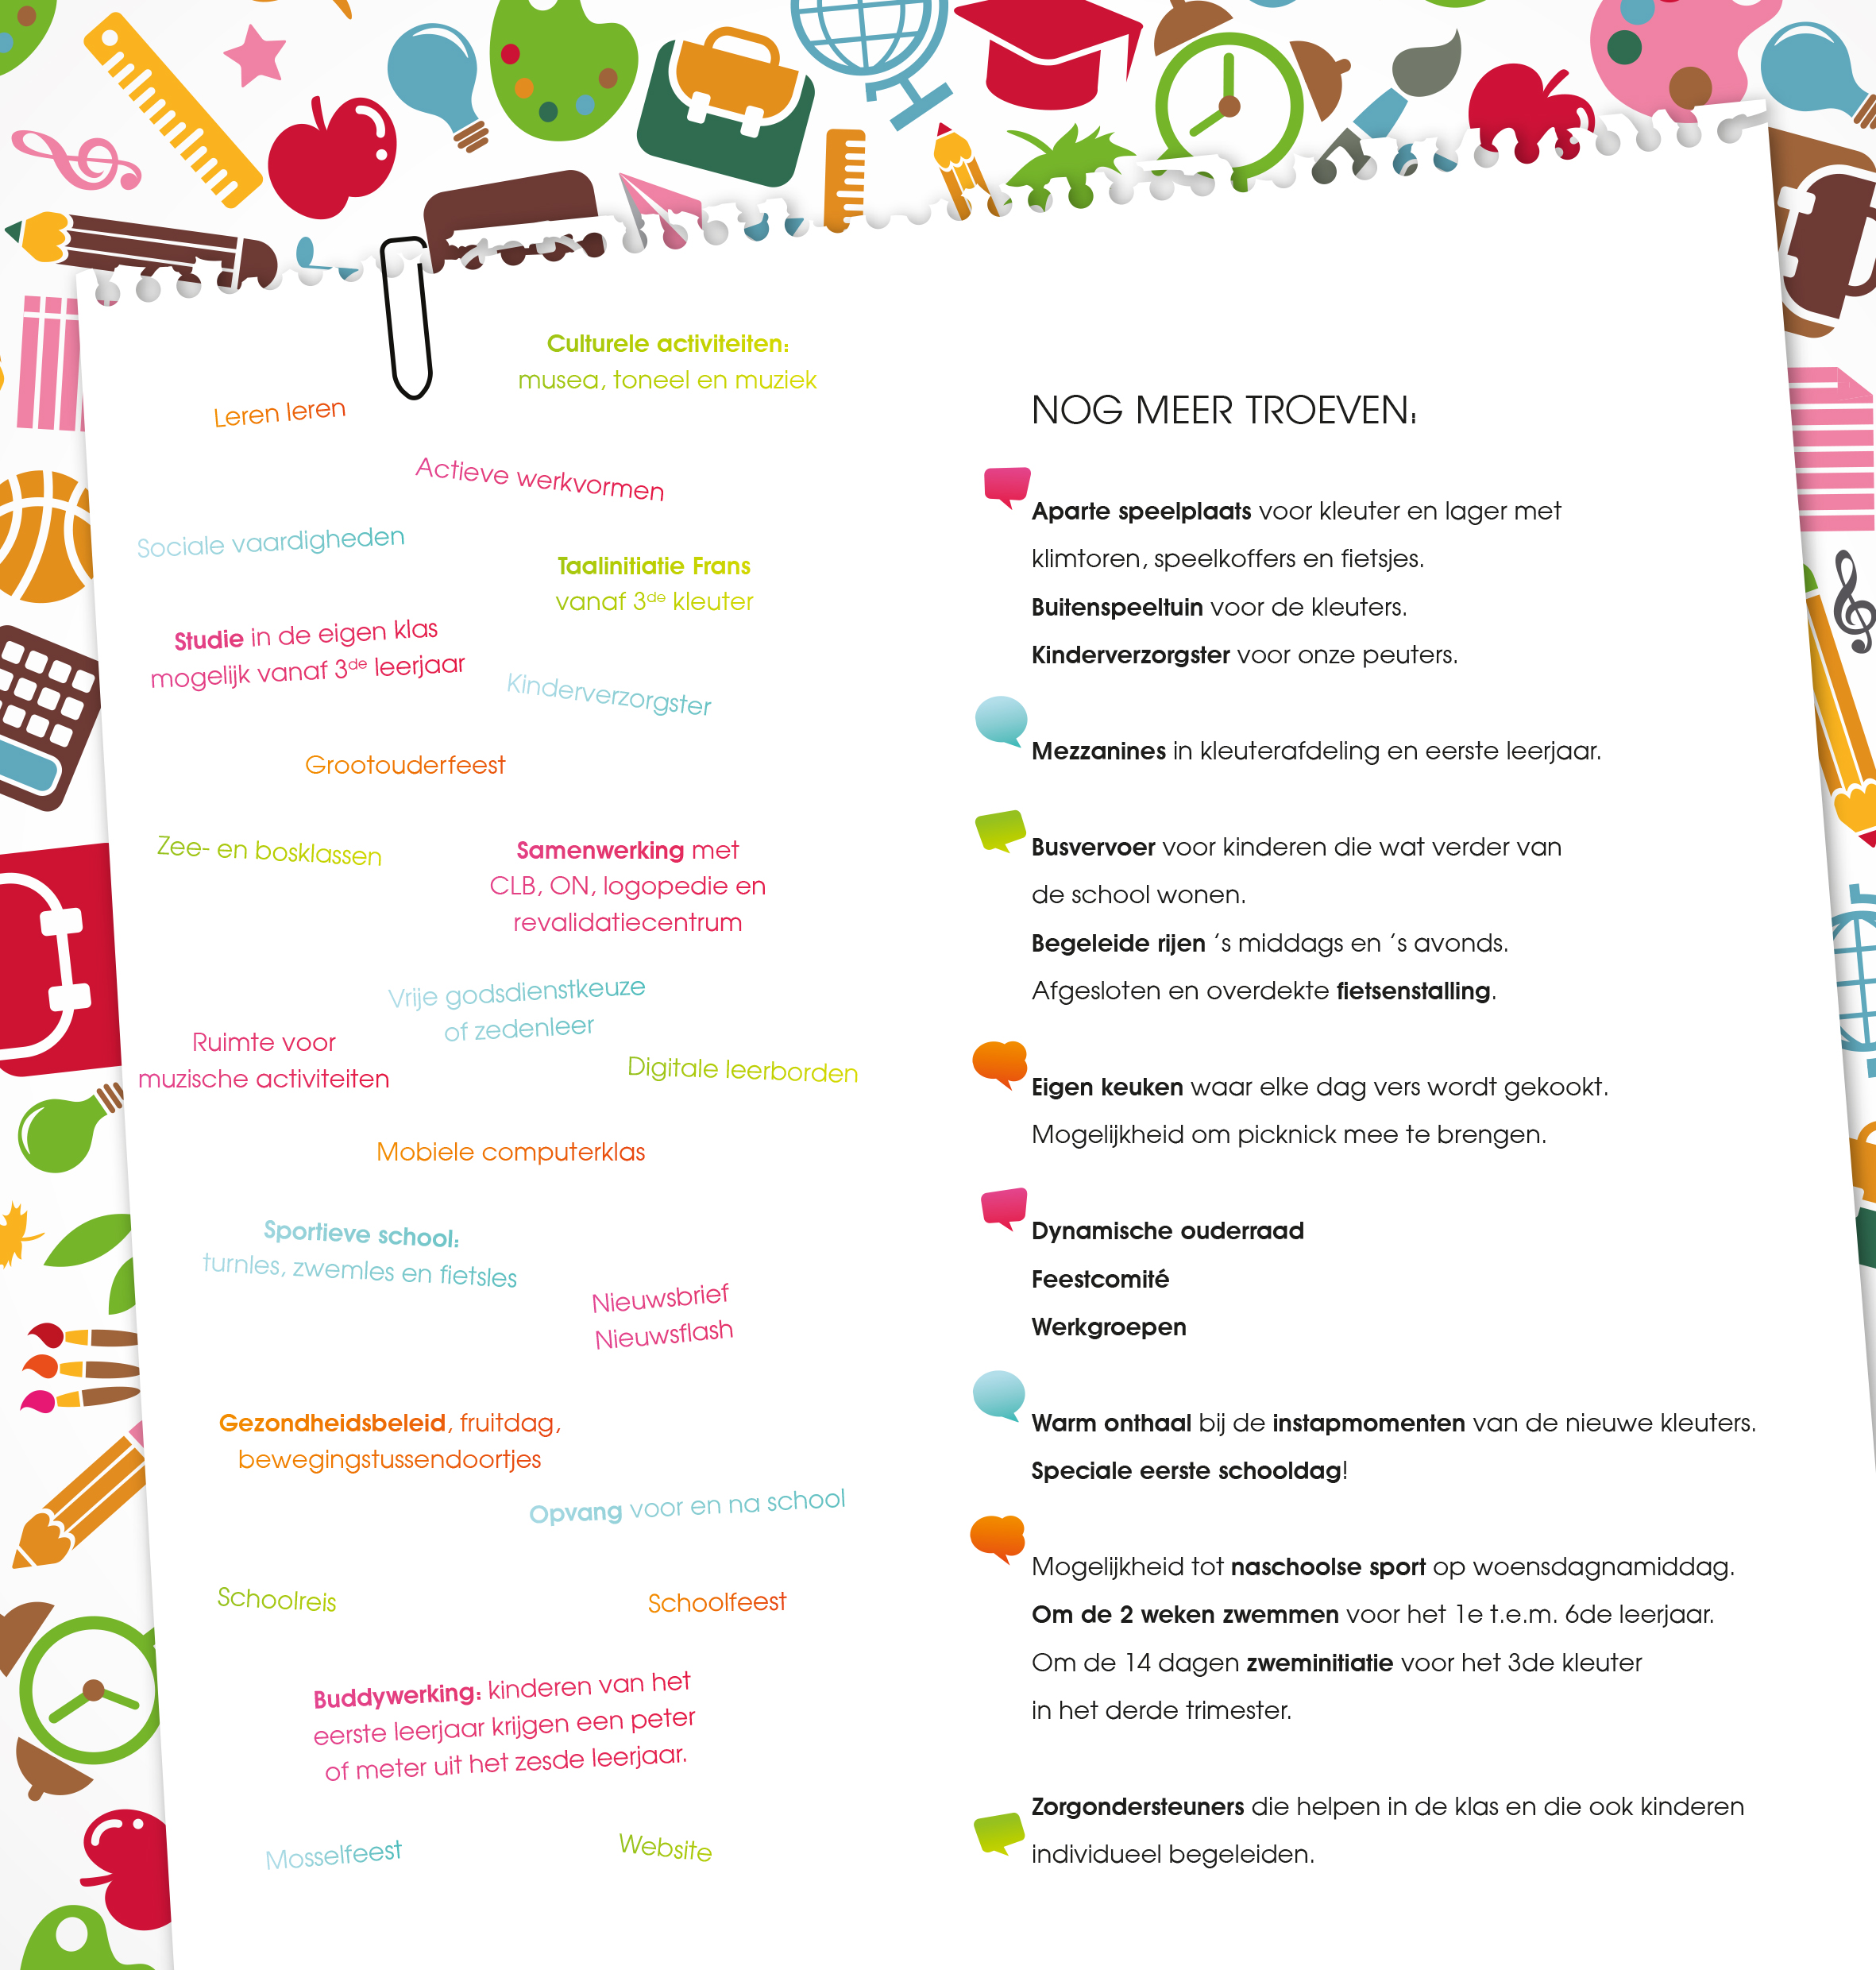 Culturele activiteiten:
musea, toneel en muziek
Leren leren
Actieve werkvormen
Sociale vaardigheden
Taalinitiatie Frans
vanaf 3de kleuter
Studie in de eigen klas
mogelijk vanaf 3de leerjaar
Kinderverzorgster
Grootouderfeest
Zee- en bosklassen
Samenwerking met
CLB, ON, logopedie en
revalidatiecentrum
Vrije godsdienstkeuze
of zedenleer
Ruimte voor
muzische activiteiten
Digitale leerborden
Mobiele computerklas
Sportieve school:
turnles, zwemles en fietsles
Nieuwsbrief
Nieuwsflash
Gezondheidsbeleid, fruitdag,
bewegingstussendoortjes
Opvang voor en na school
Schoolreis
Schoolfeest
Buddywerking: kinderen van het
eerste leerjaar krijgen een peter
of meter uit het zesde leerjaar.
Mosselfeest
Website
NOG MEER TROEVEN:
Aparte speelplaats voor kleuter en lager met
klimtoren, speelkoffers en fietsjes.
Buitenspeeltuin voor de kleuters.
Kinderverzorgster voor onze peuters.
Mezzanines in kleuterafdeling en eerste leerjaar.
Busvervoer voor kinderen die wat verder van
de school wonen.
Begeleide rijen ’s middags en ’s avonds.
Afgesloten en overdekte fietsenstalling.
Eigen keuken waar elke dag vers wordt gekookt.
Mogelijkheid om picknick mee te brengen.
Dynamische ouderraad
Feestcomité
Werkgroepen
Warm onthaal bij de instapmomenten van de nieuwe kleuters.
Speciale eerste schooldag!
Mogelijkheid tot naschoolse sport op woensdagnamiddag.
Om de 2 weken zwemmen voor het 1e t.e.m. 6de leerjaar.
Om de 14 dagen zweminitiatie voor het 3de kleuter
in het derde trimester.
Zorgondersteuners die helpen in de klas en die ook kinderen
individueel begeleiden.